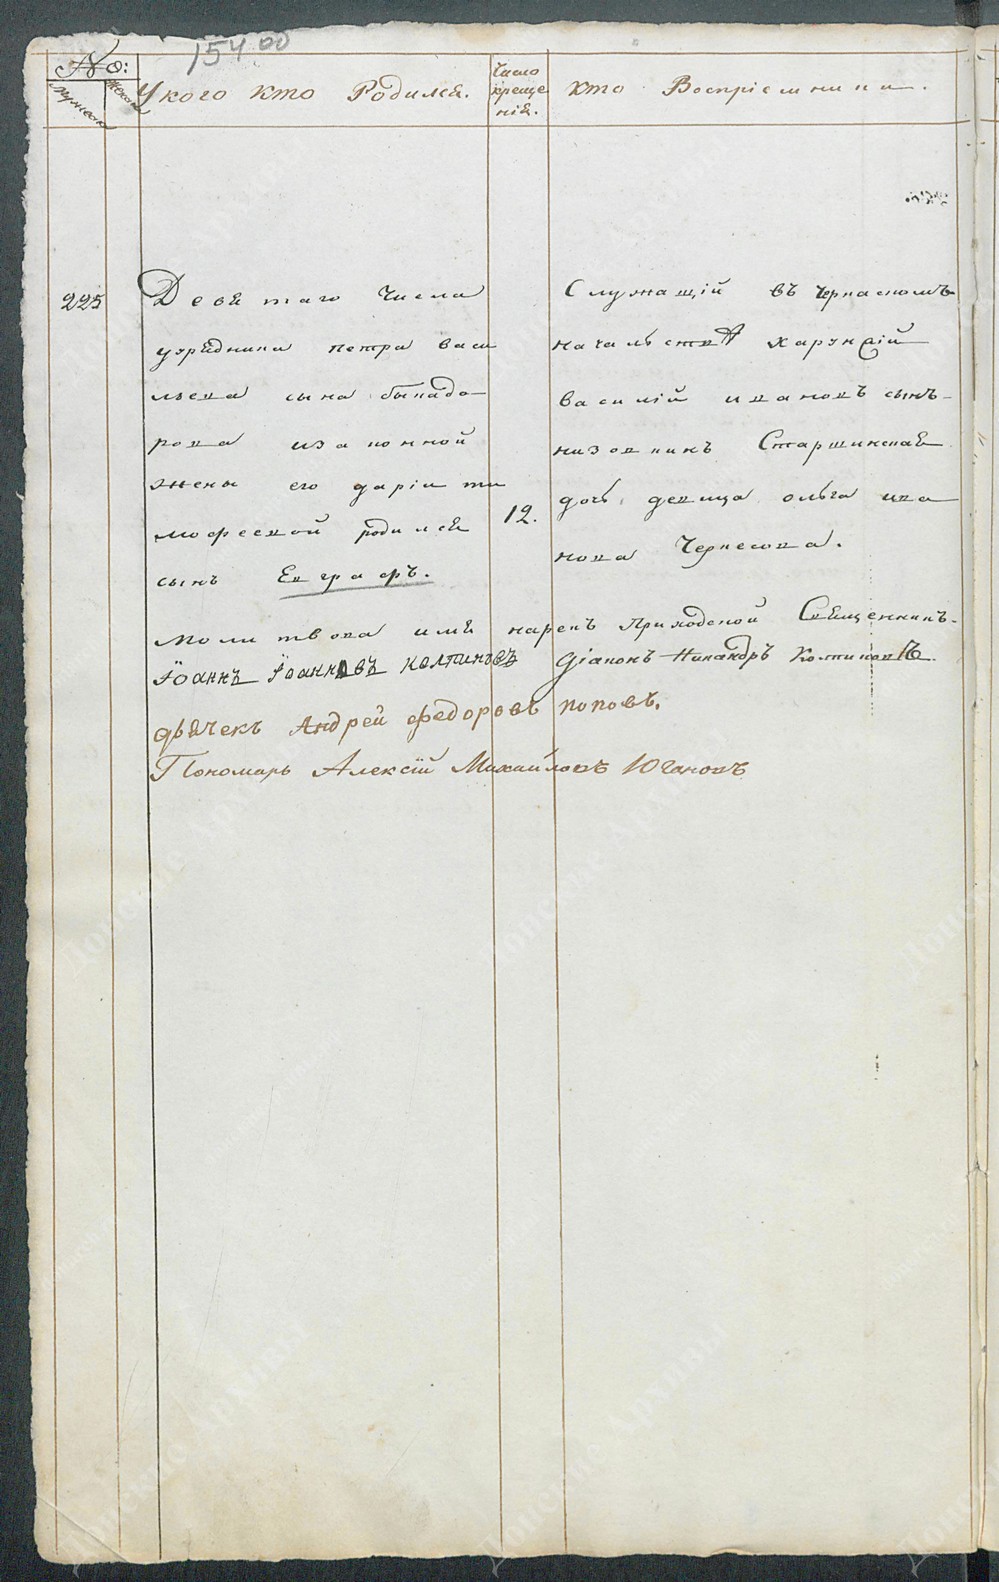 154 об
№:
мужеск
женск
У кого кто Родился.
Число креще нія.
кто Воспріемники.
225
Девятаго Числа
урядника петра васи
льева сына быкадо
рова иза конной
жены его даріи ти
мофеевой родился
сынъ Евграфъ.
12.
Служащій въ Черкаскомъ
началстве харунжій
василій ивановъ сынъ
низовкинъ Старшинская
дочь девица ольга ива
нова Чернесова.
молитвова имя нарекъ Приходской Священникъ
Іоаннъ Іоанновъ Колтиновъ Діаконъ Никандръ Колтиновъ
дьячекъ Андрей федоровъ поповъ.
Пономарь Алексій Михайловъ Югановъ